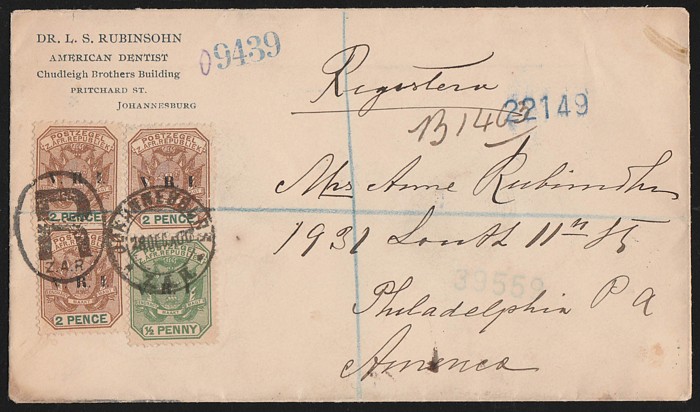 DR. L. S. RUBINSOHN
AMERICAN DENTIST
Chudleigh Brothers Building
PRITCHARD ST.
JOHANNESBURG
09439
Registered
B1403
22149
POSTZEGEL
Z.AFR.REPUBLIEK
V.R.I.
2 PENCE
POSTZEGEL
Z.AFR.REPUBLIEK
V.R.I.
2 PENCE
R
Z.A.R.
JOHANNESBURG
Z.A.R.
POSTZEGEL
Z.AFR.REPUBLIEK
V.R.I.
2 PENCE
Z.AFR.REPUBLIEK
½ PENNY
Mrs Anne Rubinsohn
1931 South 11th St
39559
Philadelphia P A
America